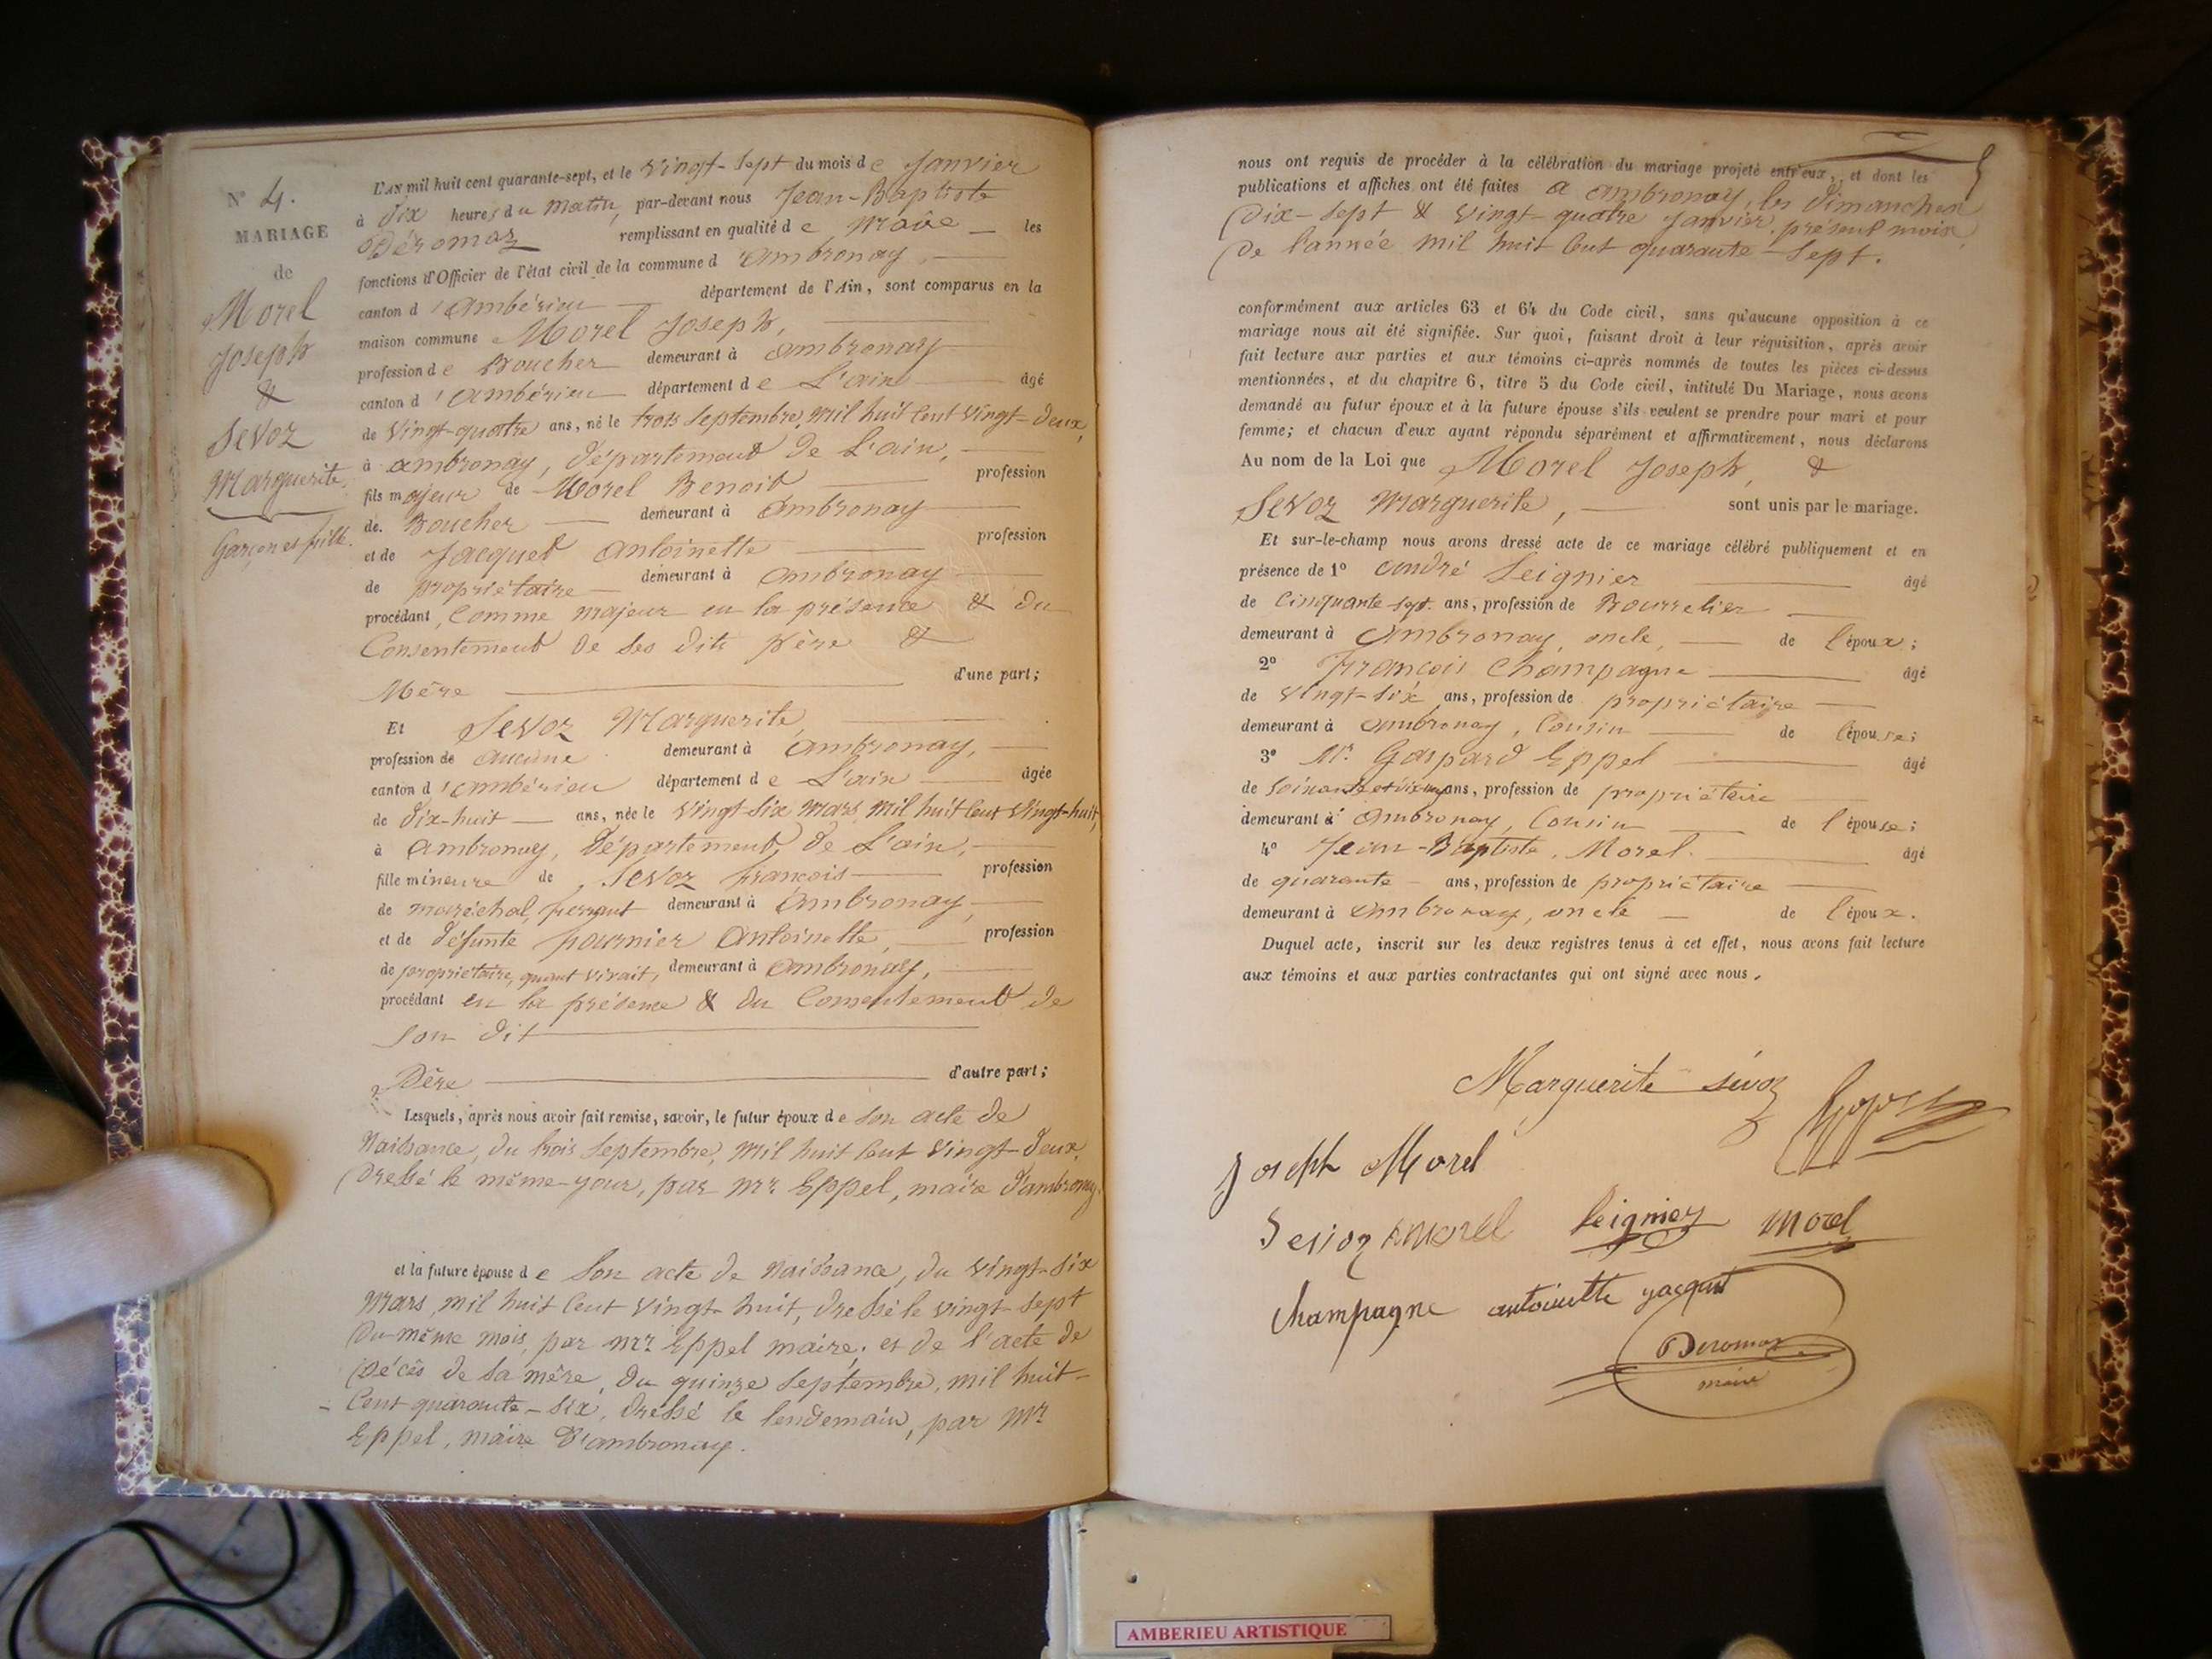 N° 4.
MARIAGE
de
Morel
Joseph
&
Sevoz
Marguerite.
Garçon et fille.
L'AN mil huit cent quarante-sept, et le vingt-sept du mois de Janvier
à dix heures du matin, par-devant nous Jean-Baptiste
Déromaz remplissant en qualité de Maire les
fonctions d'Officier de l'état civil de la commune d'ambronay,
canton d'ambérieu département de l'Ain, sont comparus en la
maison commune Morel Joseph,
profession de Boucher demeurant à ambronay
canton d'ambérieu département de L'ain âgé
de vingt-quatre ans, né le trois septembre, mil huit cent vingt-deux,
à ambronay, département de L'ain,
fils majeur de Morel Benoit profession
de Boucher demeurant à ambronay
et de Jacquet antoinette profession
de propriétaire demeurant à ambronay
procédant, comme majeur en la présence & du
Consentement de ses dits père &
Mère d'une part;
Et Sevoz Marguerite,
profession de aucune demeurant à ambronay,
canton d'ambérieu département de L'ain âgée
de dix-huit ans, née le vingt-six mars mil huit cent vingt-huit,
à ambronay, département de L'ain,
fille mineure de Sevoz francois profession
de maréchal ferrant demeurant à ambronay,
et de défunte fournier antoinette, profession
de propriétaire, quant vivait, demeurant à ambronay,
procédant en la présence & du Consentement de
son dit
Père d'autre part;
Lesquels, après nous avoir fait remise, savoir, le futur époux de son acte de
Naissance, du trois septembre, mil huit cent vingt-deux,
dressé le même-jour, par Mr. Eppel, maire d'ambronay.
et la future épouse de son acte de naissance, du vingt-six
mars, mil huit cent vingt-huit, dressé le vingt-sept
du-même mois, par Mr Eppel maire; et de l'acte de
décès de sa mère, du quinze septembre, mil huit-
cent quarante-six, dressé le lendemain, par Mr
Eppel, maire d'ambronay.
5
nous ont requis de procéder à la célébration du mariage projeté entr'eux, et dont les
publications et affiches ont été faites a ambronay, les dimanches
dix-sept & vingt-quatre janvier, présent mois,
de l'année mil huit cent quarante-sept.
conformément aux articles 63 et 64 du Code civil, sans qu'aucune opposition à ce
mariage nous ait été signifiée. Sur quoi, faisant droit à leur réquisition, après avoir
fait lecture aux parties et aux témoins ci-après nommés de toutes les pièces ci-dessus
mentionnées, et du chapitre 6, titre 5 du Code civil, intitulé Du Mariage, nous avons
demandé au futur époux et à la future épouse s'ils veulent se prendre pour mari et pour
femme; et chacun d'eux ayant répondu séparément et affirmativement, nous déclarons
Au nom de la Loi que Morel Joseph, &
Sevoz Marguerite, sont unis par le mariage.
Et sur-le-champ nous avons dressé acte de ce mariage célébré publiquement et en
présence de 1° andré Seignier âgé
de cinquante-sept ans, profession de Bourrelier
demeurant à ambronay, oncle, de l'époux;
2° François Champagne âgé
de vingt-six ans, profession de propriétaire
demeurant à ambronay, Cousin de l'épouse;
3° Mr. Gaspard Eppel âgé
de ans, profession de propriétaire
demeurant à ambronay, Cousin de l'épouse;
4° Jean-Baptiste Morel. âgé
de quarante ans, profession de propriétaire
demeurant à ambronay, oncle de l'époux.
Duquel acte, inscrit sur les deux registres tenus à cet effet, nous avons fait lecture
aux témoins et aux parties contractantes qui ont signé avec nous.
Marguerite sévoz
Joseph Morel
Sevoz Morel Seignier Morel
Champagne antoinette jacquet
Deromaz
maire
AMBERIEU ARTISTIQUE